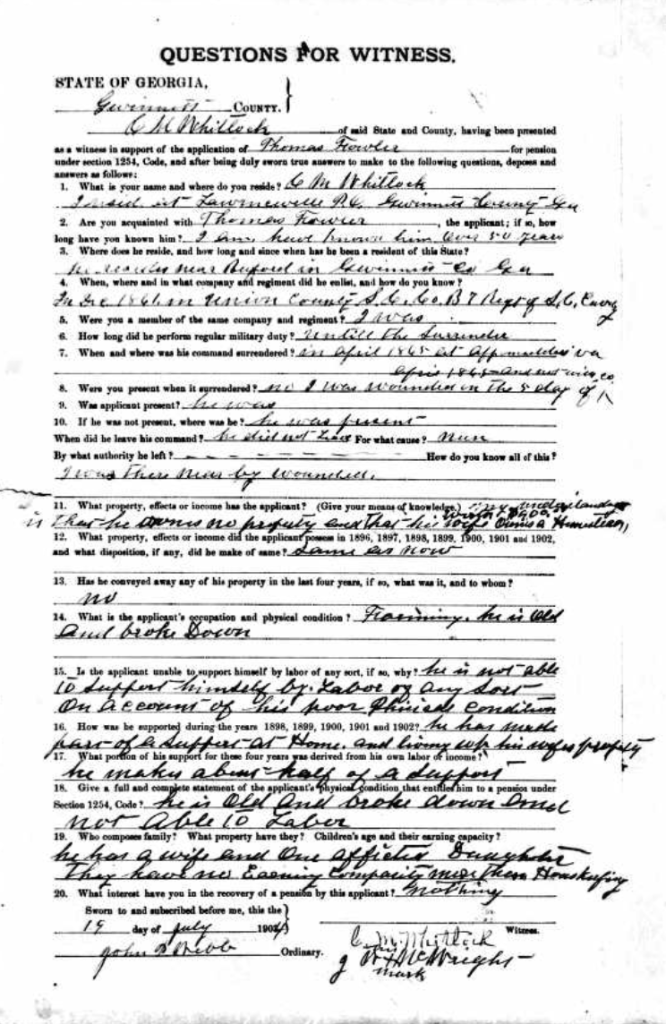 QUESTIONS FOR WITNESS.
STATE OF GEORGIA,
Gwinnett COUNTY. }
C M Whitlock of said State and County, having been presented
as a witness in support of the application of Thomas Fowler for pension
under section 1254, Code, and after being duly sworn true answers to make to the following questions, deposes and
answers as follows:
1. What is your name and where do you reside? C M Whitlock
I resid at Lawrenceville P.O. Gwinnett County Ga
2. Are you acquainted with Thomas Fowler, the applicant; if so, how
long have you known him? I am have known him over 50 years
3. Where does he reside, and how long and since when has he been a resident of this State?
he resides near Buford in Gwinnett Co Ga
4. When, where and in what company and regiment did he enlist, and how do you know?
In Dec 1861 in Union County S.C. Co. B 7 Regt of S.C. Cavry
5. Were you a member of the same company and regiment? I was
6. How long did he perform regular military duty? untill the Surrender
7. When and where was his command surrendered? in april 1865 at Appomattox va
april 1865 and
8. Were you present when it surrendered? no I was wounded on the 8 day of
9. Was applicant present? he was
10. If he was not present, where was he? he was present
When did he leave his command? he did not leave For what cause? nun
By what authority he left? — — — — — How do you know all of this?
I was there near by wounded.
11. What property, effects or income has the applicant? (Give your means of knowledge.) my understanding
is that he owns no property and that his wife owns a Homestead, worth $900.
12. What property, effects or income did the applicant possess in 1896, 1897, 1898, 1899, 1900, 1901 and 1902,
and what disposition, if any, did he make of same? Same as now
13. Has he conveyed away any of his property in the last four years, if so, what was it, and to whom?
no
14. What is the applicant's occupation and physical condition? Farming. he is old
and broke down
15. Is the applicant unable to support himself by labor of any sort, if so, why? he is not able
to support himself by Labor of any sort
on account of his poor Phisical condition
16. How was he supported during the years 1898, 1899, 1900, 1901 and 1902? he has made
part of a support at Home. and living off his wifes property
17. What portion of his support for these four years was derived from his own labor or income?
he makes about half of a support
18. Give a full and complete statement of the applicant's physical condition that entitles him to a pension under
Section 1254, Code? he is old and broke down and
not able to Labor
19. Who composes family? What property have they? Children's age and their earning capacity?
he has a wife and one afflicted Daughter
They have no Earning Compacity more than Housekeeping
20. What interest have you in the recovery of a pension by this applicant? nothing
Sworn to and subscribed before me, this the }
19 day of July 190 Witness.
John P Webb Ordinary. C. M. Whitlock
his
McWright
mark